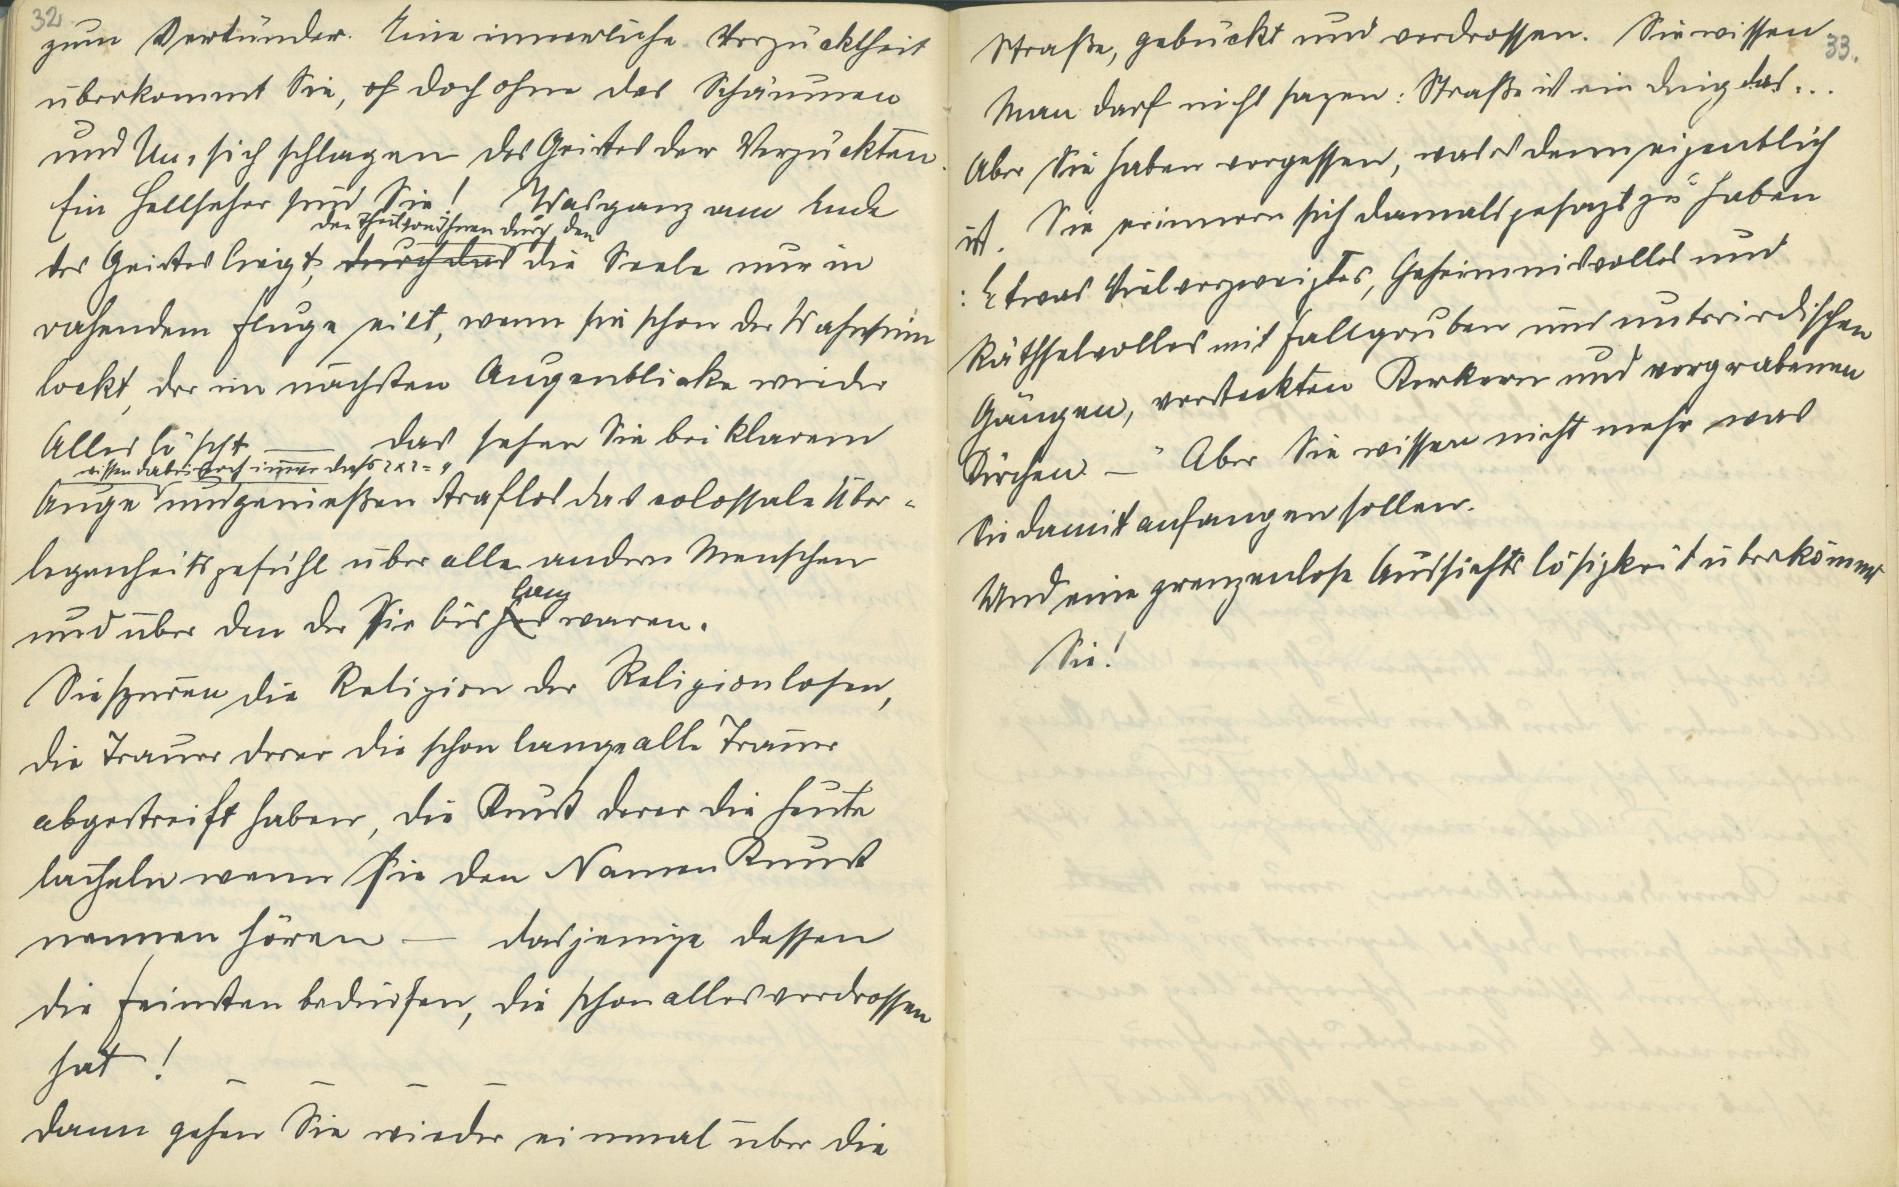 32
zum Verkünder. Eine innerliche Verzücktheit
überkommt Sie, of doch ohne das Schäumen
und Um, sich schlagen des Geistes der Verzückten.
Ein Hellseher sind Sie! Was ganz am Ende
durch den
des Geistes liegt, durch das die Seele nur in
rasendem Fluge eilt, wenn sie schon der Wahnsinn
lockt, der im nächsten Augenblicke wieder
Alles löscht — das sehen Sie bei klarem
wissen dabei noch immer dass 2x2=4
Auge und genießen straflos das colossale Über-
legenheitsgefühl über alle andern Menschen
lang
und über den der Sie bis her waren.
Sie spüren die Religion der Religionlosen,
die Trauer derer die schon lange alle Trauer
abgestreift haben, die Kunst derer die heute
lächeln wenn sie den Namen Kunst
nennen hören — dasjenige dessen
die Feinsten bedürfen, die schon alles verdrossen
hat!
— — — —
Dann gehen Sie wieder einmal über die
33.
Straße, gebückt und verdrossen. Sie wissen
Man darf nicht sagen: Straße ist ein Ding das...
Aber Sie haben vergessen, was es denn eigentlich
ist. Sie erinnern sich damals gesagt zu haben
: Etwas Vielverzweigtes, Geheimnisvolles und
Räthselvolles mit Fallgruben und unterirdischen
Gängen, versteckten Kerkern und vergrabenen
Kirchen —" Aber Sie wissen nicht mehr was
Sie damit anfangen sollen.
Und eine grenzenlose Aussichtslosigkeit überkommt
Sie!